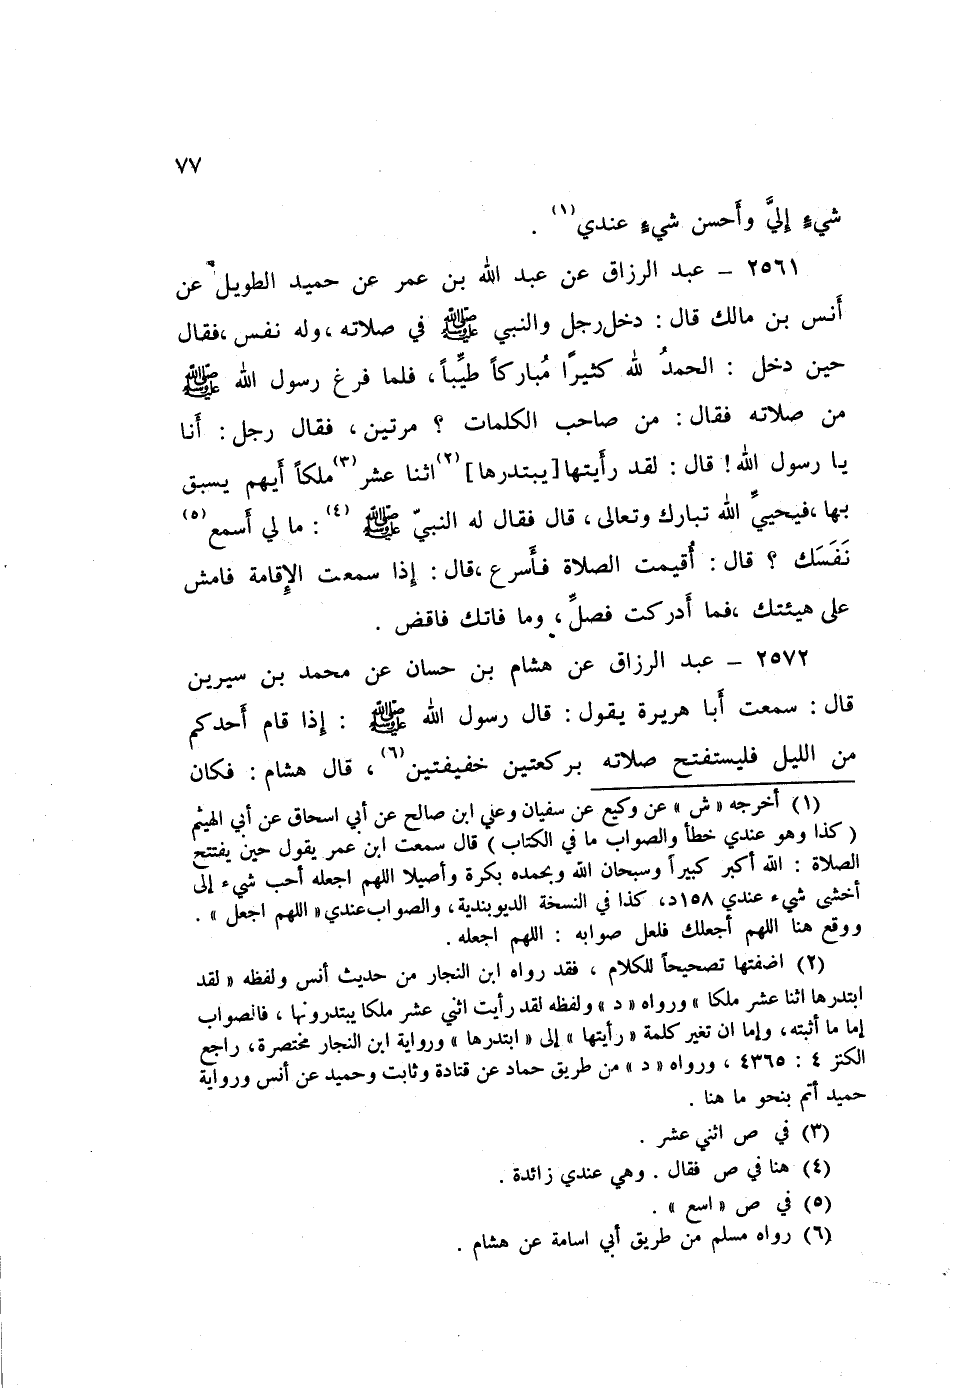 ٧٧
شيءٍ إليَّ وأَحسن شيءٍ عندي(١) .
٢٥٦١ – عبد الرزاق عن عبد الله بن عمر عن حميد الطويل عن
أَنس بن مالك قال : دخل رجل والنبي ﷺ في صلاته ، وله نفس ، فقال
حين دخل : الحمدُ لله كثيرًا مُباركاً طيِّباً ، فلما فرغ رسول الله ﷺ
من صلاته فقال : من صاحب الكلمات ؟ مرتين ، فقال رجل : أَنا
يا رسول الله ! قال : لقد رأَيتها [يبتدرها](٢) اثنا عشر(٣) ملكاً أَيهم يسبق
بها ، فيحييّ الله تبارك وتعالى ، قال فقال له النبيّ ﷺ (٤) : ما لي أَسمع(٥)
نَفَسَك ؟ قال : أُقيمت الصلاة فأَسرع ، قال : إذا سمعت الإِقامة فامش
على هيئتك ، فما أَدركت فصلِّ ، وما فاتك فاقض .
٢٥٧٢ – عبد الرزاق عن هشام بن حسان عن محمد بن سيرين
قال : سمعت أَبا هريرة يقول : قال رسول الله ﷺ : إذا قام أَحدكم
من الليل فليستفتح صلاته بركعتين خفيفتين(٦) ، قال هشام : فكان
(١) أخرجه « ش » عن وكيع عن سفيان وعلي ابن صالح عن أبي اسحاق عن أبي الهيثم
( كذا وهو عندي خطأ والصواب ما في الكتاب ) قال سمعت ابن عمر يقول حين يفتتح
الصلاة : الله أكبر كبيراً وسبحان الله وبحمده بكرة وأصيلا اللهم اجعله أحب شيء إلى
أخشى شيء عندي ١٥٨د، كذا في النسخة الديوبندية ، والصواب عندي « اللهم اجعل » .
ووقع هنا اللهم أجعلك فلعل صوابه : اللهم اجعله .
(٢) اضفتها تصحيحاً للكلام ، فقد رواه ابن النجار من حديث أنس ولفظه « لقد
ابتدرها اثنا عشر ملكا » ورواه « د » ولفظه لقد رأيت اثني عشر ملكا يبتدرونها ، فالصواب
إما ما أثبته ، وإما ان تغير كلمة « رأيتها » إلى « ابتدرها » ورواية ابن النجار مختصرة ، راجع
الكنز ٤ : ٤٣٦٥ ، ورواه « د » من طريق حماد عن قتادة وثابت وحميد عن أنس ورواية
حميد أتم بنحو ما هنا .
(٣) في ص اثني عشر .
(٤) هنا في ص فقال . وهي عندي زائدة .
(٥) في ص « اسع » .
(٦) رواه مسلم من طريق أبي اسامة عن هشام .